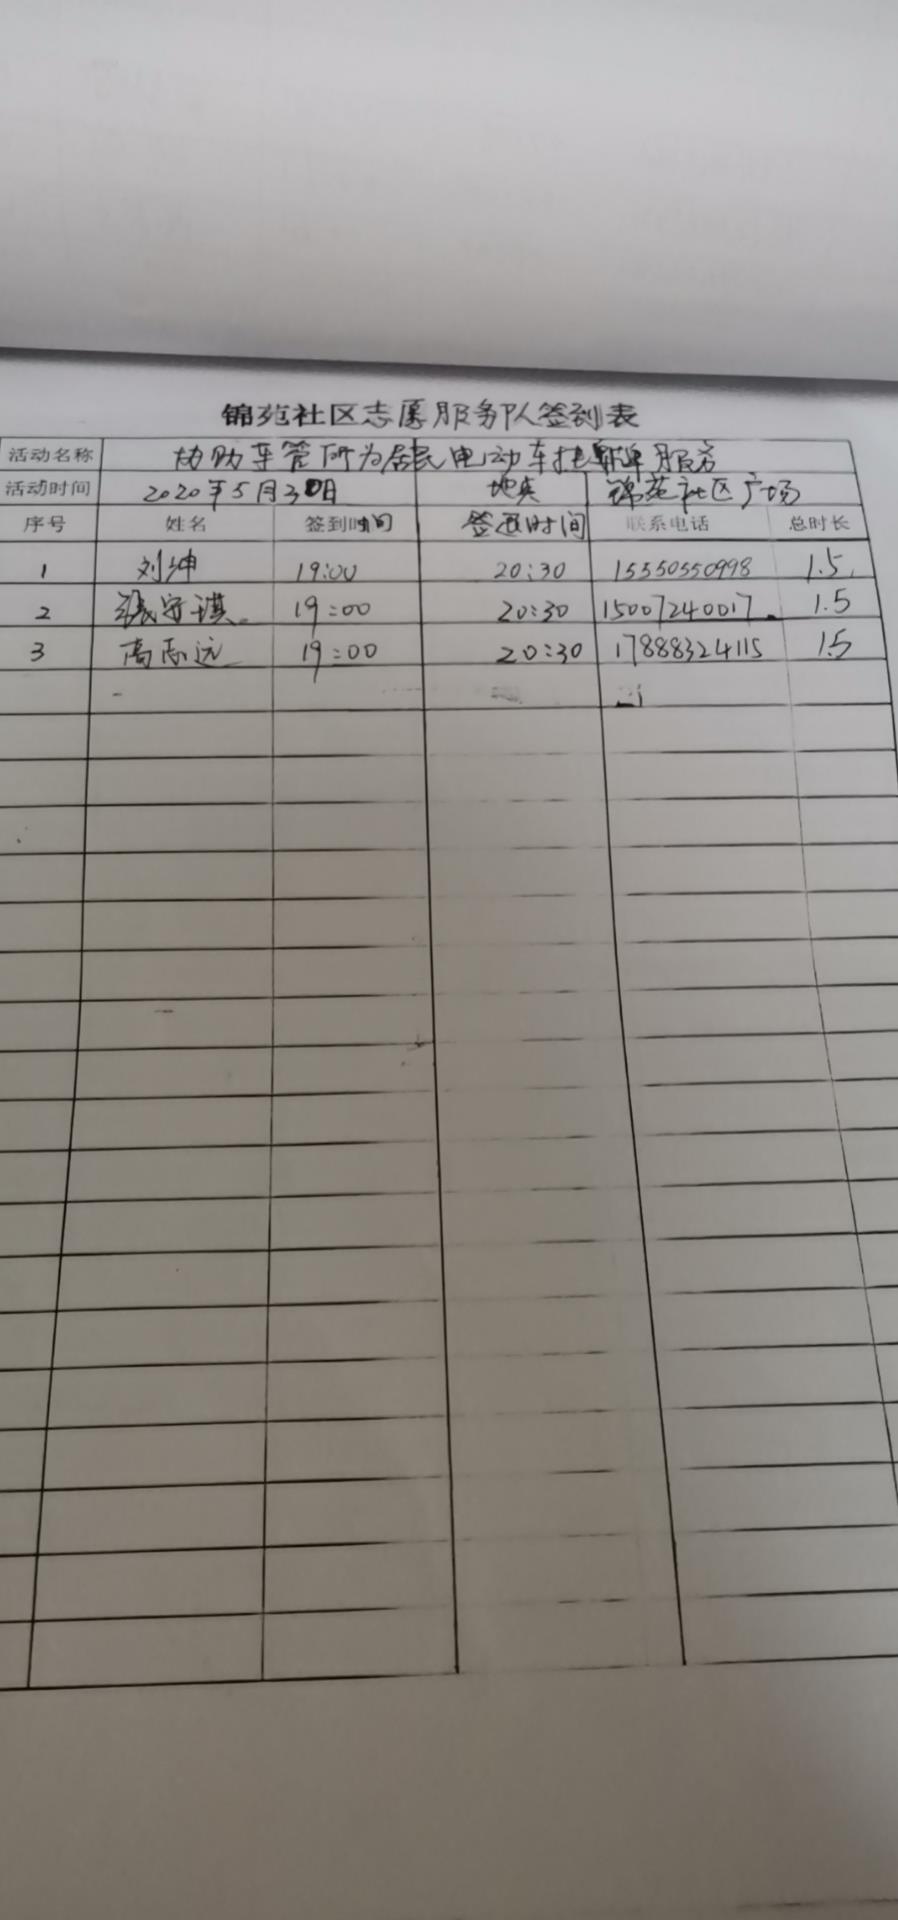 锦苑社区志愿服务队签到表
活动名称 协助车管所为居民电动车挂牌服务
活动时间 2020年5月30日 地点 锦苑社区广场
序号 姓名 签到时间 签退时间 联系电话 总时长
1 刘坤 19:00 20:30 15550550998 1.5
2 张守琪 19:00 20:30 15007240017 1.5
3 高志远 19:00 20:30 17888324115 1.5